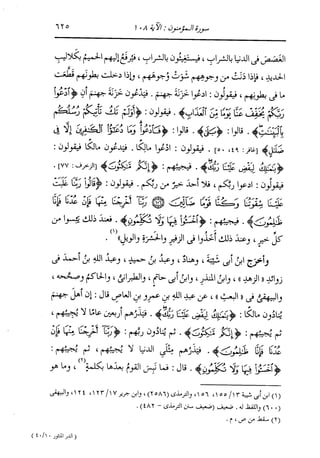 سورة المؤمنون : الآية ١٠٨
٦٢٥
الغصص في الدنيا بالشراب ، فيستغيثون بالشراب ، فيُرفع إليهم الحميم بكلاليب
الحديد ، فإذا دنت من وجوههم شوت وجوههم ، وإذا دخلت بطونهم قطعت
ما في بطونهم ، فيقولون : ادعوا خزنة جهنم . فيدعون خزنة جهنم أن ﴿ادعوا
ربكم يخفف عنا يوما من العذاب﴾ . فيقولون : ﴿أولم تك تأتيكم رسلكم
بالبينات﴾ . قالوا : ﴿بلى﴾ . قالوا : ﴿فادعوا وما دعاء الكافرين إلا في
ضلال﴾ [غافر: ٤٩، ٥٠] . فيقولون : ادعوا مالكًا . فيدعون مالكًا فيقولون :
﴿يا مالك ليقض علينا ربك﴾ . فيجيبهم : ﴿إنكم ماكثون﴾ [الزخرف: ٧٧] .
فيقولون : ادعوا ربكم ، فلا أحد خير من ربكم . فيقولون : ﴿قالوا ربنا غلبت
علينا شقوتنا وكنا قوما ضالين ربنا أخرجنا منها فإن
عدنا فإنا ظالمون﴾ . فيجيبهم : ﴿اخسئوا فيها ولا تكلمون﴾ . فعند ذلك يئسوا من
كل خير ، وعند ذلك أخذوا في الزفير والحسرة والويل(١) .
وأخرج ابن أبي شيبة ، وهناد ، وعبد بن حميد ، وعبد الله بن أحمد في
زوائد «الزهد» ، وابن المنذر ، وابن أبي حاتم ، والطبراني ، والحاكم وصححه ،
والبيهقي في «البعث» ، عن عبد الله بن عمرو بن العاص قال : إن أهل جهنم
ينادون مالكًا : ﴿يا مالك ليقض علينا ربك﴾ . فيذرهم أربعين عامًا لا يجيبهم ،
ثم يجيبهم : ﴿إنكم ماكثون﴾ . ثم ينادون ربهم : ﴿ربنا أخرجنا منها فإن
عدنا فإنا ظالمون﴾ . فيذرهم مثلي الدنيا لا يجيبهم ، ثم يجيبهم :
﴿اخسئوا فيها ولا تكلمون﴾ . قال : فما نبس القوم بعدها بكلمة(٢) ، وما هو
(١) ابن أبي شيبة ١٣/ ١٥٥، ١٥٦، والترمذي (٢٥٨٦) ، وابن جرير ١٧/ ١٢٣، ١٢٤، والبيهقي
(٦٠٠) واللفظ له . ضعيف (ضعيف سنن الترمذي - ٤٨٢) .
(٢) سقط من ص، م .
( الدر المنثور ٤٠/١٠ )